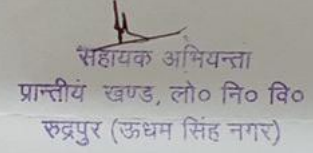 सहायक अभियन्ता
प्रान्तीय खण्ड, लो० नि० वि०
रुद्रपुर (ऊधम सिंह नगर)